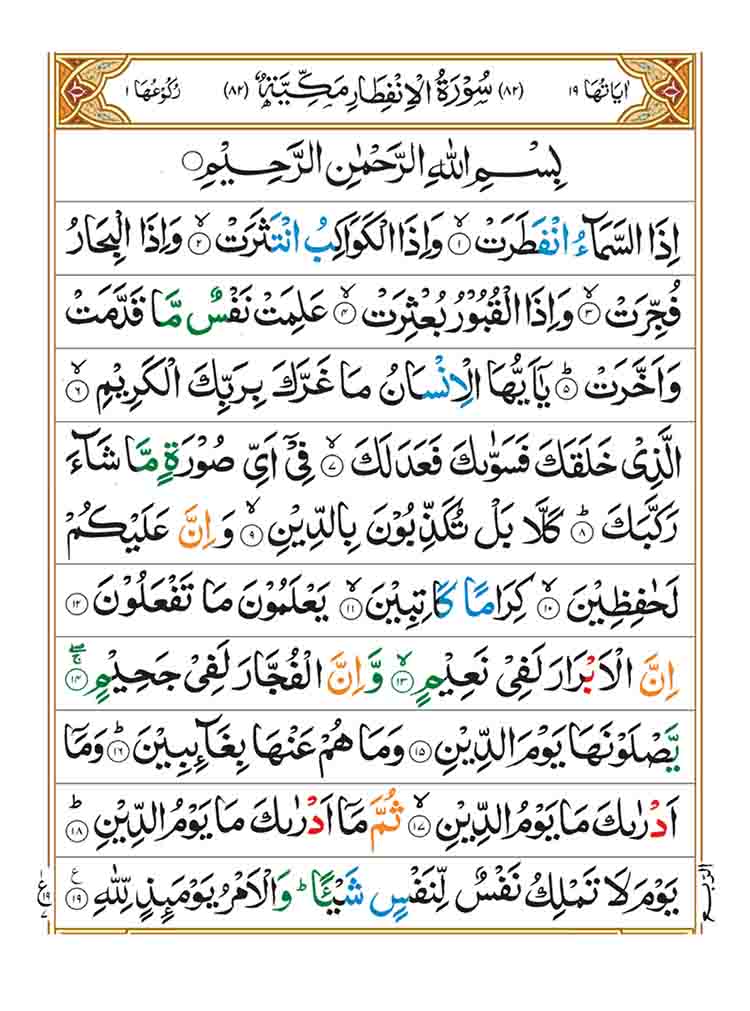 اٰيَاتُهَا ١٩ (٨٢) سُوْرَةُ الْاِنْفِطَارِ مَكِّيَّةٌ (٨٢) رُكُوْعُهَا ١
بِسْمِ اللهِ الرَّحْمٰنِ الرَّحِيْمِ ۝
اِذَا السَّمَآءُ انْفَطَرَتْ ۙ‏﴿١﴾ وَاِذَا الْكَوَاكِبُ انْتَثَرَتْ ۙ‏﴿٢﴾ وَاِذَا الْبِحَارُ
فُجِّرَتْ ۙ‏﴿٣﴾ وَاِذَا الْقُبُوْرُ بُعْثِرَتْ ۙ‏﴿٤﴾ عَلِمَتْ نَفْسٌ مَّا قَدَّمَتْ
وَاَخَّرَتْ ؕ‏﴿٥﴾ يٰۤاَيُّهَا الْاِنْسَانُ مَا غَرَّكَ بِرَبِّكَ الْكَرِيْمِ ۙ‏﴿٦﴾
الَّذِىْ خَلَقَكَ فَسَوّٰىكَ فَعَدَلَكَ ۙ‏﴿٧﴾ فِىْۤ اَىِّ صُوْرَةٍ مَّا شَآءَ
رَكَّبَكَ ؕ‏﴿٨﴾ كَلَّا بَلْ تُكَذِّبُوْنَ بِالدِّيْنِ ۙ‏﴿٩﴾ وَاِنَّ عَلَيْكُمْ
لَحٰفِظِيْنَ ۙ‏﴿١٠﴾ كِرَامًا كَاتِبِيْنَ ۙ‏﴿١١﴾ يَعْلَمُوْنَ مَا تَفْعَلُوْنَ ﴿١٢﴾
اِنَّ الْاَبْرَارَ لَفِىْ نَعِيْمٍ ۙ‏﴿١٣﴾ وَّاِنَّ الْفُجَّارَ لَفِىْ جَحِيْمٍ ۚۖ‏﴿١٤﴾
يَّصْلَوْنَهَا يَوْمَ الدِّيْنِ ﴿١٥﴾ وَمَا هُمْ عَنْهَا بِغَآئِبِيْنَ ؕ‏﴿١٦﴾ وَمَاۤ
اَدْرٰىكَ مَا يَوْمُ الدِّيْنِ ۙ‏﴿١٧﴾ ثُمَّ مَاۤ اَدْرٰىكَ مَا يَوْمُ الدِّيْنِ ؕ‏﴿١٨﴾
يَوْمَ لَا تَمْلِكُ نَفْسٌ لِّنَفْسٍ شَيْـًٔا ؕ وَالْاَمْرُ يَوْمَئِذٍ لِّلّٰهِ ﴿١٩﴾ ع
الرّبع
ع ١٩ ٧